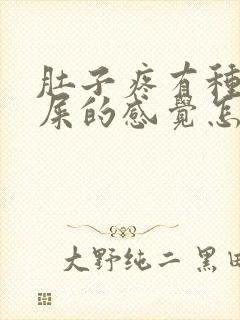 肚子疼有種
屎的感覺怎
大野纯二 黑田